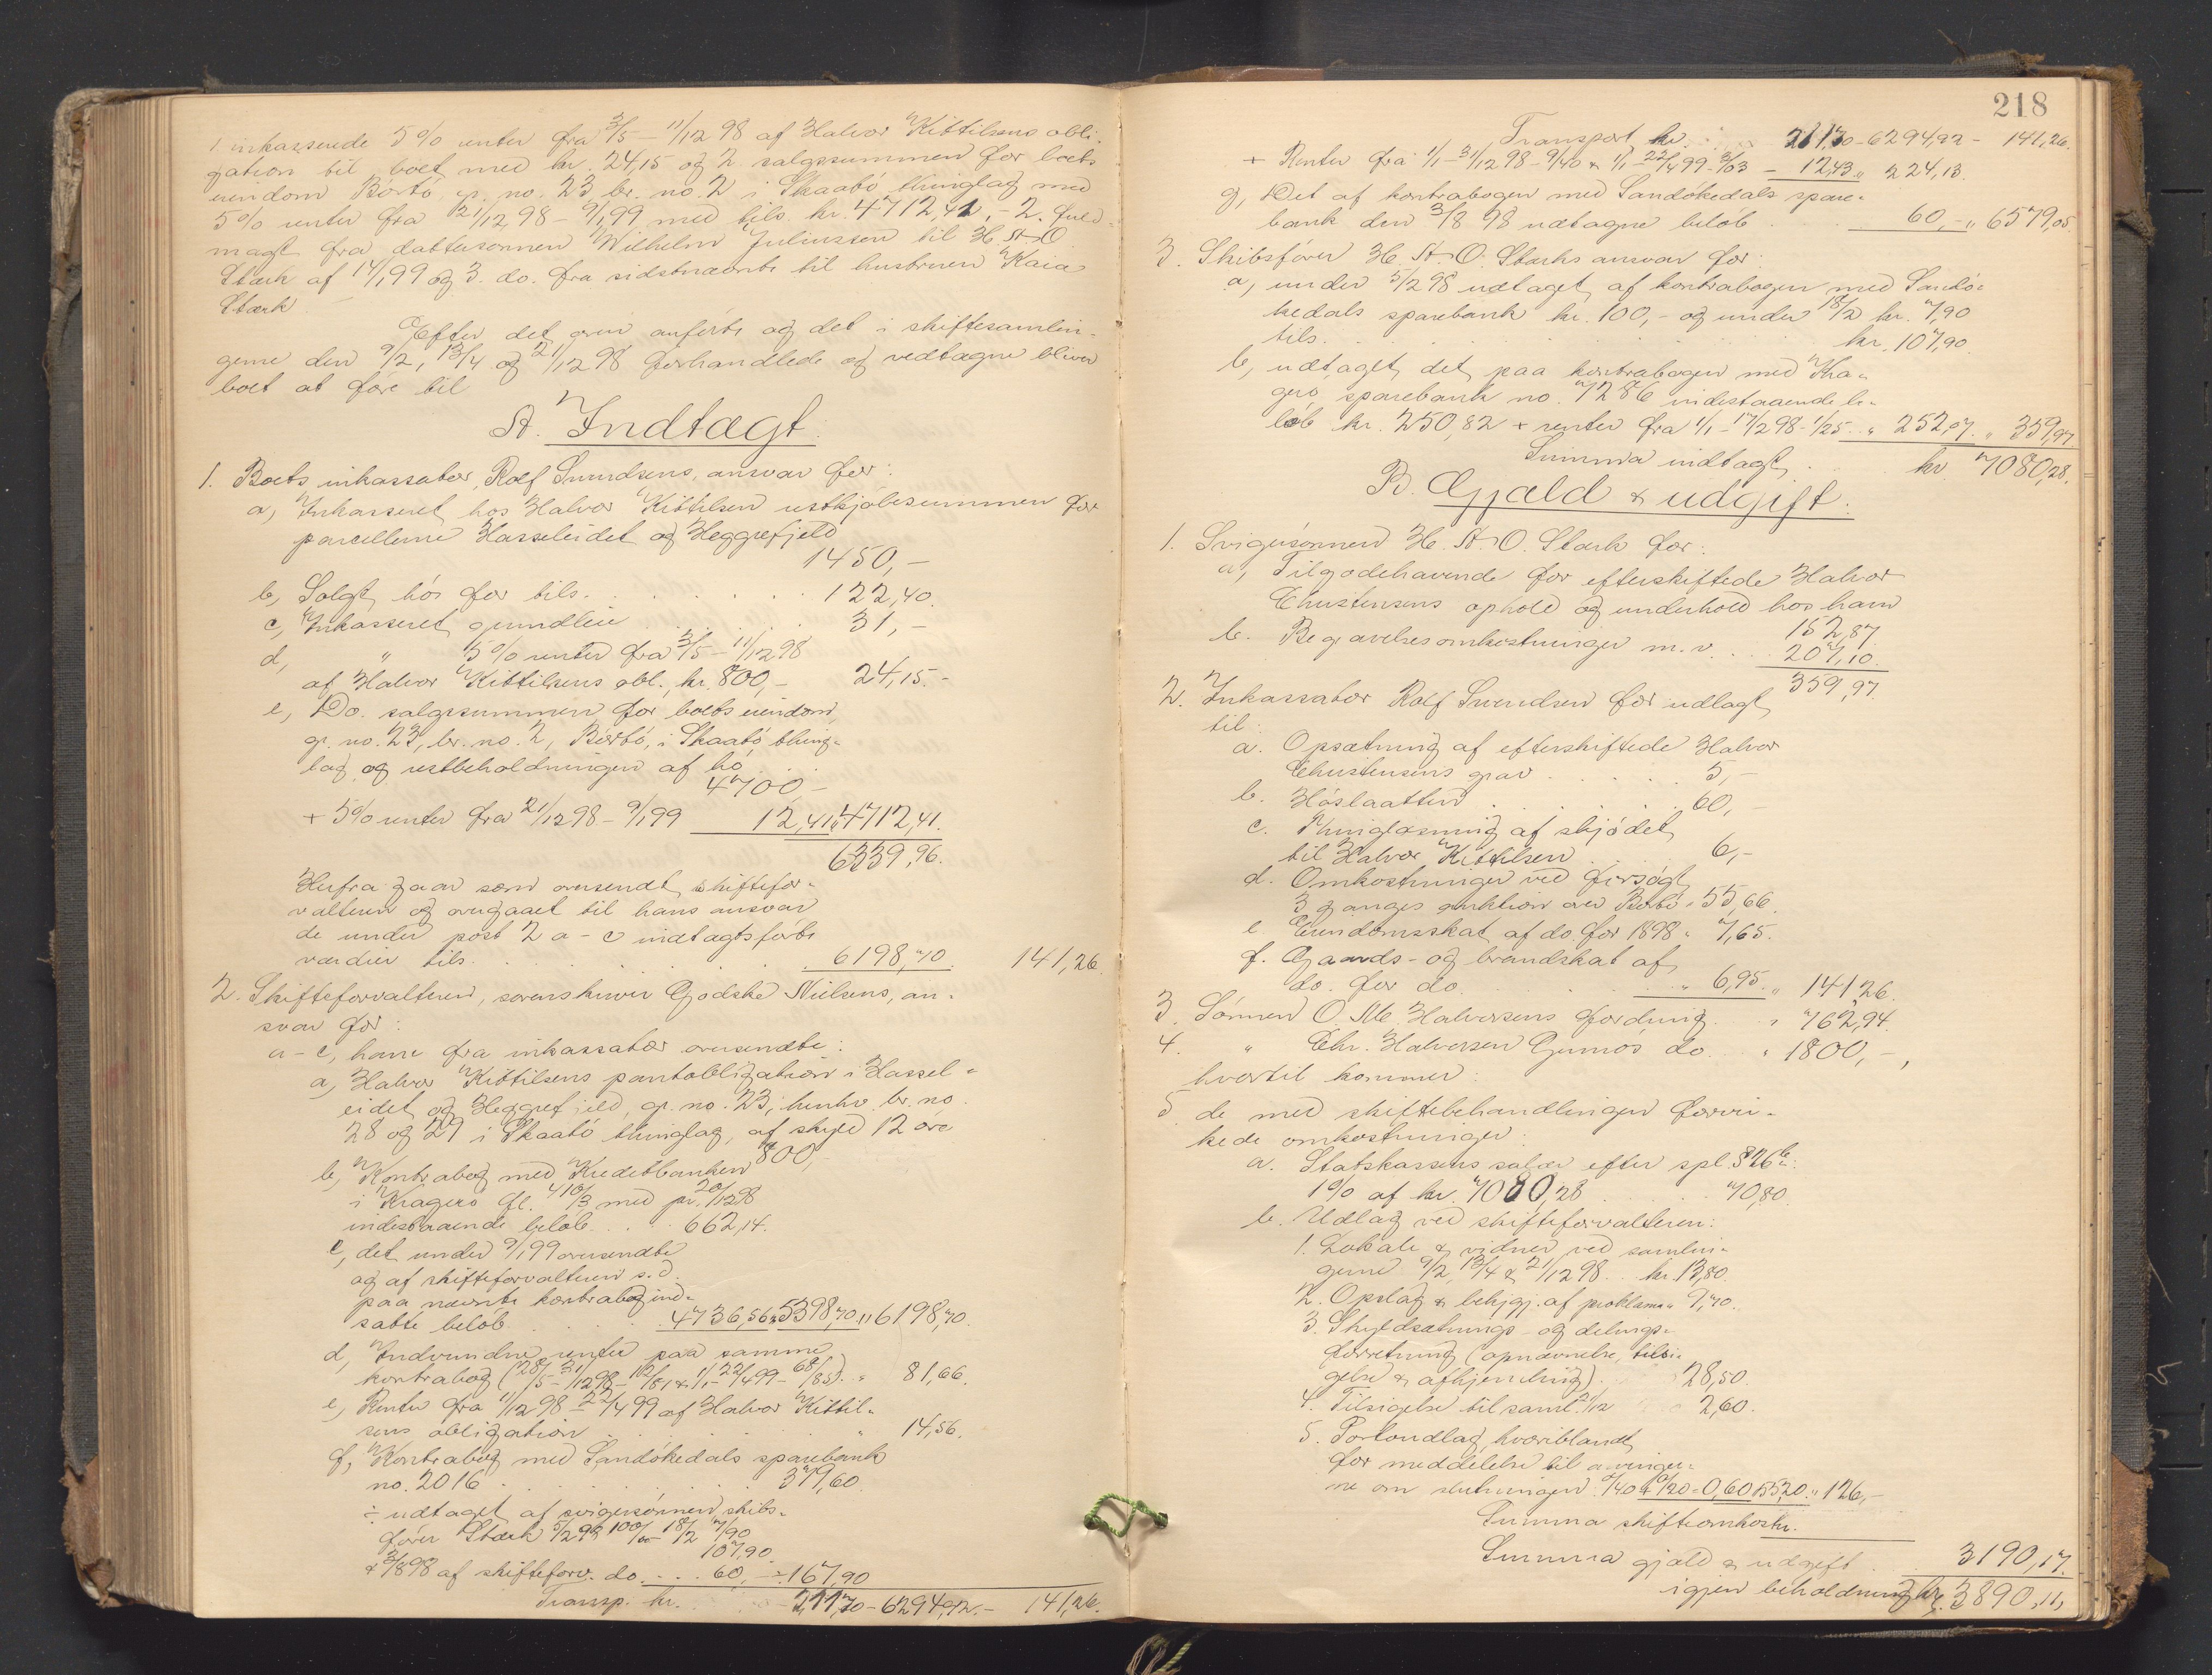 inkasserede 5% renter fra 3/5 - 11/12 98 af Halvor Kittilsens obli-
gation til boet med kr. 24,15 og 2. salgssummen for boets
eiendom Börtö gr. no. 23 br. no. 2 i Skaatö thinglag med
5% renter fra 21/12 98 - 9/1 99 med tils. kr. 4712,41, - 2. fuld-
magt fra dattersönnen Wilhelm Juliussen til H. A. O.
Stærk af 14/1 99 og 3. do. fra sidstnævnte til hustruen Kaia
Stærk
Efter det oven anförte og det i skiftesamlin-
gerne den 9/2, 13/4 og 21/12 98 forhandlede og vedtagne bliver
boet at före til
A. Indtægt.
1. Boets inkassator, Rolf Svendsens, ansvar for:
a, Inkasseret hos Halvor Kittilsen restkjöbesummen for
parcellerne Hasseleidet og Heggrefjeld
1450,-
b, Solgt hö for tils. . . . . . . 122,40.
c, Inkasseret grundleie . . . . 31,-
d, " 5% renter fra 3/5 - 11/12 98
af Halvor Kittilsens obl. kr. 800,- 24,15.-
e, Do. salgssummen for boets eiendom,
gr. no. 23, br. no. 2, Börtö, i Skaatö thing-
lag og restbeholdningen af hö . . .
4700,-
+ 5% renter fra 21/12 98 - 9/1 99 12,41 " 4712,41.
6339,96.
Herfra gaar som oversendt skiftefor-
valteren og overgaaet til hans ansvar
de under post 2 a - c indtægtsförte
værdier tils. . . . . . . . 6198,70. 141,26.
2. Skifteforvalteren, sorenskriver Godske Nielsens, an-
svar for:
a - c, ham fra inkassator oversendte:
a, Halvor Kittilsens pantobligation i Hassel-
eidet og Heggrefjeld, gr. no. 23, henhv. br. no.
28 og 29 i Skaatö thinglag, af skyld 12 öre
800,-
b, Kontrabog med Kreditbanken
i Kragerö fl. 410/3 med pr. 20/12 98
indestaaende belöb . . . . 662,14.
c, det under 9/1 99 oversendte
og af skifteforvalteren s. d.
paa nævnte kontrabog ind-
satte belöb . . . . 4736,56 " 5398,70 " 6198,70.
d, Indvundne renter paa samme
kontrabog (28/5 - 31/12 98 - & 1/1 - 22/4 99 - 68/85) . " 81,66.
e, Renter fra 11/12 98 - 22/4 99 af Halvor Kittil-
sens obligation . . . . . . " 14,56.
f, Kontrabog med Sandökedals sparebank
no. 2016 . . . . . . . 379,60.
÷ udtaget af svigersönnen skibs-
förer Stærk 5/2 98 100/00 18/2 7/90
107,90
& 3/8 98 af skifteforv. do. . . . 60,- ÷ 167,90
Transp. kr. . . 211,70 - 6294,92.- 141,26.
218
Transport kr. . . 211,70 - 6294,92 - 141,26.
+ Renter fra 1/1 - 31/12 98 - 9/40 & 1/1 - 22/4 99 - 3/03 - 12,43 " 224,13.
g, Det af kontrabogen med Sandökedals spare-
bank den 3/8 98 udtagne belöb . . . 60,- " 6579,05.
3. Skibsförer H. A. O. Stærks ansvar for:
a, under 5/2 98 udtaget af kontrabogen med Sandö-
kedals sparebank kr. 100,- og under 18/2 kr. 7,90
tils. . . . . . . . . . kr. 107,90.
b, udtaget det paa kontrabogen med Kra-
gerö sparebank no. 7286 indestaaende be-
löb kr. 250,82 + renter fra 1/1 - 17/2 98 - 1/25 . " 252,07. " 359,97
Summa indtægt . . . kr. 7080,28.
B. Gjæld & udgift.
1. Svigersönnen H. A. O. Stærk for:
a, Tilgodehavende for efterskiftede Halvor
Christensens ophold og underhold hos ham
152,87.
b. Begravelsesomkostninger m. v. . . 207,10.
359,97.
2. Inkassator Rolf Svendsen for udlagt
til:
a. Opsætning af efterskiftede Halvor
Christensens grav . . . . . 5,-
b. Höslaatten . . . . . . 60,-
c. Thinglæsning af skjödet
til Halvor Kittilsen . . . 6,-
d. Omkostninger ved forsögt
3 ganges auktion over Börtö " 55,66.
e. Eiendomsskat af do for 1898 " 7,65.
f. Gaards- og brandskat af
do. for do. . . . . . " 6,95. " 141,26.
3. Sönnen O. M. Halvorsens fordring. " 762,94.
4. " Chr. Halvorsen Gumös do. " 1800,-,
hvortil kommer:
5 de med skiftebehandlingen forvir-
kede omkostninger:
a. Statskassens salær efter spl. § 26 b:
1% af kr. 7080,28 . . . . . 70,80.
b. Udlæg ved skifteforvalteren:
1. Lokale & vidner ved samlin-
gerne 9/2, 13/4 & 21/12 98 . . kr. 13,80.
2. Opslag & bekjgj. af proklama " 9,70.
3. Skyldsætnings- og delings-
forretning (opnævnelse, tilsi-
gelse & afhjemling) . . 28,50.
4. Tilsigelse til saml. 21/12 2,60.
5. Portoudlæg, hvoriblandt
for meddelelse til arvinger-
ne om slutningen 0/40 & 0/20 = 0,60 " 55,20 " 126,-
Summa skifteomkostn.
Summa gjæld & udgift . . 3190,17.
igjen beholdning kr. 3890,11,